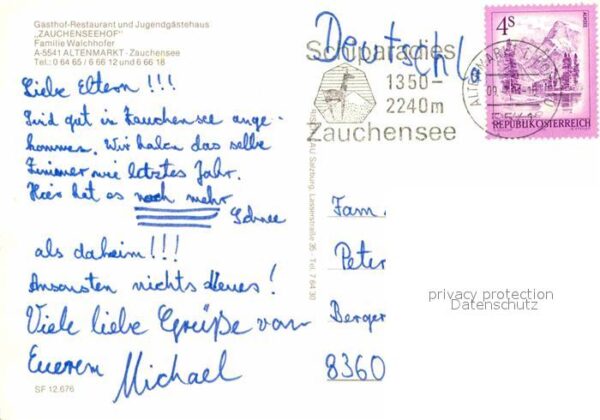 Gasthof-Restaurant und Jugendgästehaus
"ZAUCHENSEEHOF"
Familie Walchhofer
A-5541 ALTENMARKT - Zauchensee
Tel.: 0 64 65 / 6 66 12 und 6 66 18
Liebe Eltern!!!
Sind gut in Zauchensee ange-
kommen. Wir haben das selbe
Zimmer wie letztes Jahr.
Hier hat es noch mehr
Schnee
als daheim!!!
Ansonsten nichts Neues!
Viele liebe Grüße von
Euerem Michael
SF 12.676
Salzburg, Lesserstraße 35 - Tel. 7 64 30
Deutschla
Schiparadies
1350-
2240m
Zauchensee
4S
REPUBLIK ÖSTERREICH
Fam.
Peter
Berger
8360
privacy protection
Datenschutz